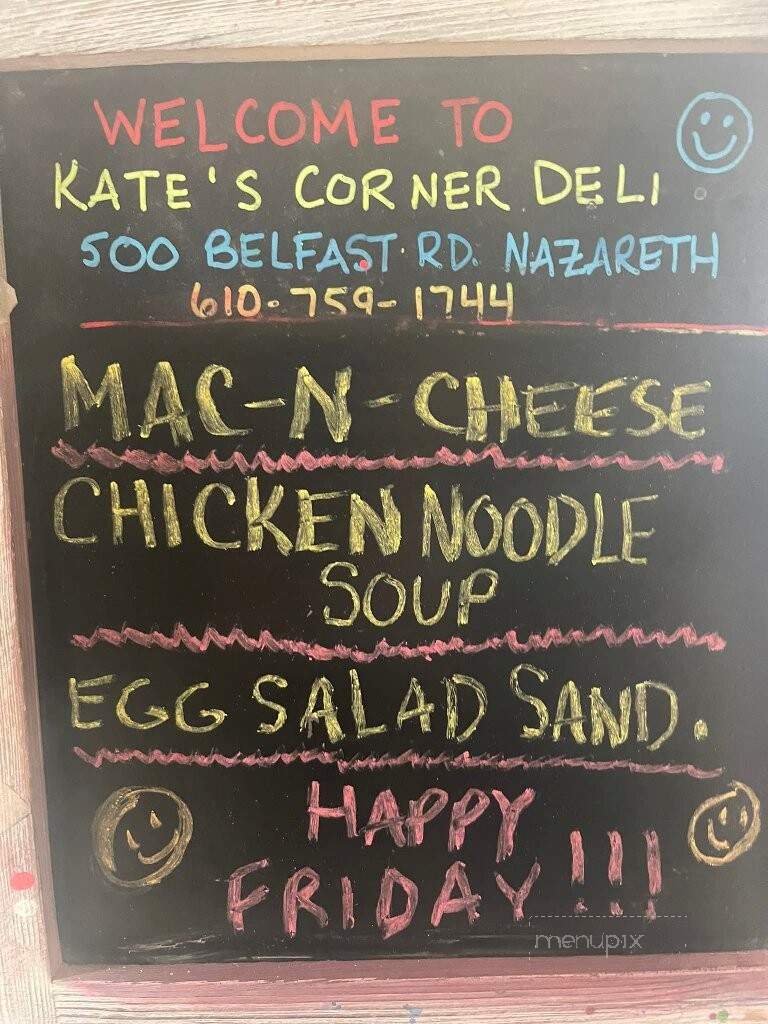 WELCOME TO
KATE'S CORNER DELI
500 BELFAST RD. NAZARETH
610-759-1744
MAC-N-CHEESE
CHICKEN NOODLE
SOUP
EGG SALAD SAND.
HAPPY
FRIDAY!!!
menupix